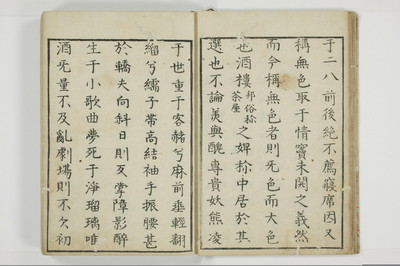 于二八前後絶不薦寢席因又
稱無色取于情竇未開之義然
而今稱無色者則旡色而大色
也酒樓邦俗称茶屋之婢於中居於其
選也不論美與醜專貴妖態凌
于世重于客赭兮麻前垂輕翻
縮兮繻子帶高結袖手振腰甚
於轎夫向科日則叉掌障影醉
生于小歌曲夢死于淨瑠璃唯
酒旡量不及亂劇場則不欠初